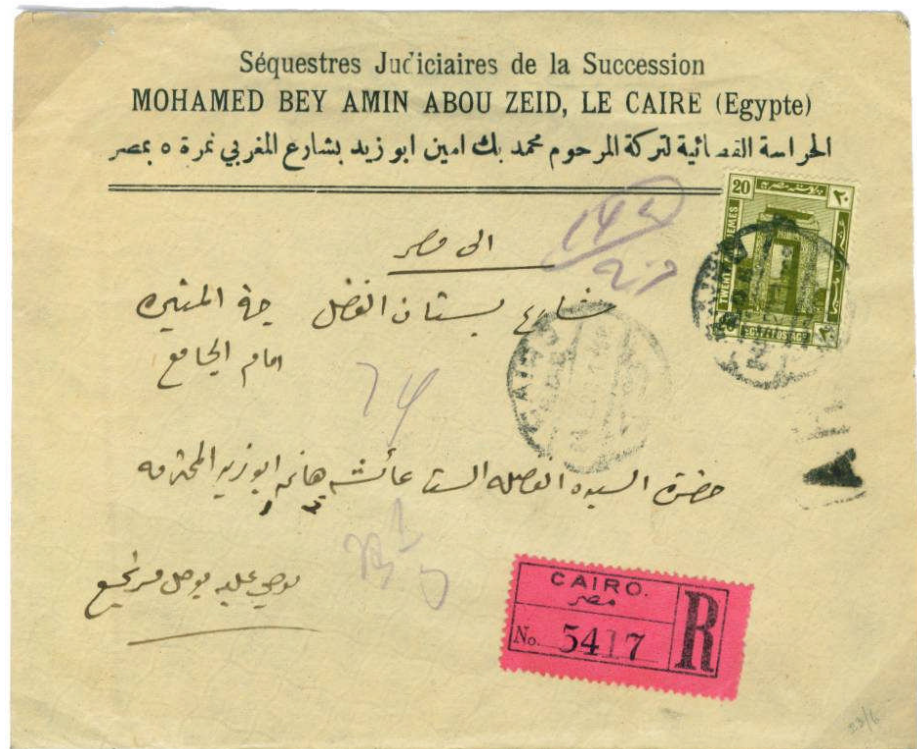 Séquestres Judiciaires de la Succession
MOHAMED BEY AMIN ABOU ZEID, LE CAIRE (Egypte)
الحراسة القضائية لتركة المرحوم محمد بك امين ابو زيد بشارع المغربي نمرة ٥ بمصر
20
٢٠
الى مصر
شارع بستان الفضل جهة المنيره
امام الجامع
حضرة السيده الفاضله الست عائشه هانم ابو زيد المحترمه
CAIRO.
مصر
No. 5417
R